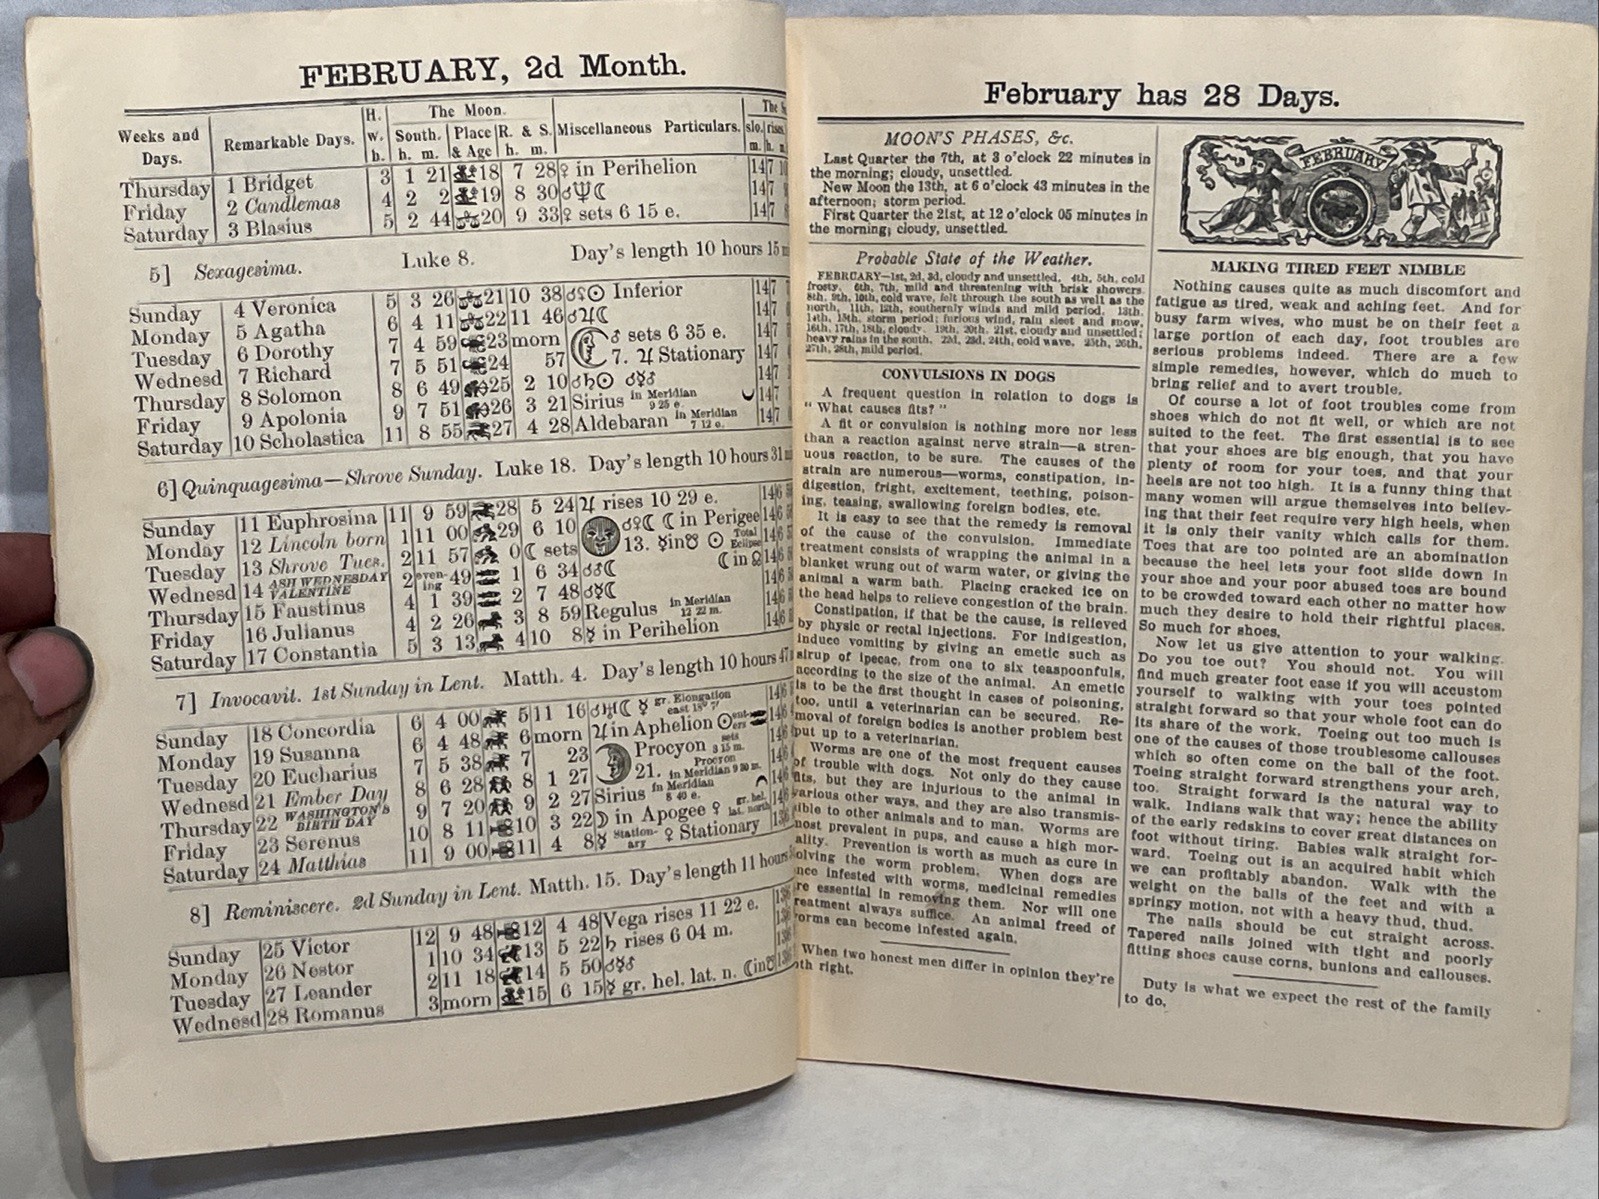 FEBRUARY, 2d Month.
Weeks and Days. | Remarkable Days. | H. w. h. | The Moon. South. h. m. | Place & Age | R. & S. h. m. | Miscellaneous Particulars. | slo. m. | rises h.
Thursday 1 Bridget 3 1 21 18 7 28 ♀ in Perihelion 14 7
Friday 2 Candlemas 4 2 2 19 8 30 ☌♆☾ 14 7
Saturday 3 Blasius 5 2 44 20 9 33 ♀ sets 6 15 e. 14 7
5] Sexagesima. Luke 8. Day's length 10 hours 15
Sunday 4 Veronica 5 3 26 21 10 38 ☌♀☉ Inferior 14 7
Monday 5 Agatha 6 4 11 22 11 46 ☌♃☾ 14 7
Tuesday 6 Dorothy 7 4 59 23 morn ♂ sets 6 35 e. 14 7
Wednesd 7 Richard 7 5 51 24 57 7. ♃ Stationary 14 7
Thursday 8 Solomon 8 6 49 25 2 10 ☌♄☉ ☌☿♂ 14 7
Friday 9 Apolonia 9 7 51 26 3 21 Sirius in Meridian 9 25 e. 14 7
Saturday 10 Scholastica 11 8 55 27 4 28 Aldebaran in Meridian 7 12 e. 14 7
6] Quinquagesima—Shrove Sunday. Luke 18. Day's length 10 hours 31
Sunday 11 Euphrosina 11 9 59 28 5 24 ♃ rises 10 29 e. 14 6
Monday 12 Lincoln born 1 11 00 29 6 10 ☌♀☾ ☾ in Perigee 14 6
Tuesday 13 Shrove Tues. 2 11 57 0 ☾ sets 13. ☿ in ☋ ☉ Total Eclipse 14 6
Wednesd 14 ASH WEDNESDAY VALENTINE 2 even-ing 49 1 6 34 ☌♂☾ ☾ in ☊ 14 6
Thursday 15 Faustinus 4 1 39 2 7 48 ☌☿☾ 14 6
Friday 16 Julianus 4 2 26 3 8 59 Regulus in Meridian 12 22 m. 14 6
Saturday 17 Constantia 5 3 13 4 10 8 ☿ in Perihelion 14 6
7] Invocavit. 1st Sunday in Lent. Matth. 4. Day's length 10 hours 47
Sunday 18 Concordia 6 4 00 5 11 16 ☌♅☾ ☿ gr. Elongation east 18° 7' 14 6
Monday 19 Susanna 6 4 48 6 morn ♃ in Aphelion ☉ ent-ers 14 6
Tuesday 20 Eucharius 7 5 38 7 23 Procyon sets 3 15 m. 14 6
Wednesd 21 Ember Day 8 6 28 8 1 27 21. Procyon in Meridian 9 30 m. 14 6
Thursday 22 WASHINGTON'S BIRTH DAY 9 7 20 9 2 27 Sirius in Meridian 8 40 e. 14 6
Friday 23 Serenus 10 8 11 10 3 22 ☽ in Apogee ♀ gr. hel. lat. north 14 6
Saturday 24 Matthias 11 9 00 11 4 8 ☿ Station-ary ♀ Stationary 13 6
8] Reminiscere. 2d Sunday in Lent. Matth. 15. Day's length 11 hours
Sunday 25 Victor 12 9 48 12 4 48 Vega rises 11 22 e. 13 6
Monday 26 Nestor 1 10 34 13 5 22 ♄ rises 6 04 m. 13 6
Tuesday 27 Leander 2 11 18 14 5 50 ☌☿♂ 13 6
Wednesd 28 Romanus 3 morn 15 6 15 ☿ gr. hel. lat. n. ☾ in ☋ 13 6
February has 28 Days.
MOON'S PHASES, &c.
Last Quarter the 7th, at 3 o'clock 22 minutes in
the morning; cloudy, unsettled.
New Moon the 13th, at 6 o'clock 43 minutes in the
afternoon; storm period.
First Quarter the 21st, at 12 o'clock 05 minutes in
the morning; cloudy, unsettled.
Probable State of the Weather.
FEBRUARY—1st, 2d, 3d, cloudy and unsettled. 4th, 5th, cold
frosty. 6th, 7th, mild and threatening with brisk showers.
8th, 9th, 10th, cold wave, felt through the south as well as the
north. 11th, 12th, southernly winds and mild period. 13th,
14th, 15th, storm period; furious wind, rain sleet and snow.
16th, 17th, 18th, cloudy. 19th, 20th, 21st, cloudy and unsettled;
heavy rains in the south. 22d, 23d, 24th, cold wave. 25th, 26th,
27th, 28th, mild period.
CONVULSIONS IN DOGS
A frequent question in relation to dogs is
"What causes fits?"
A fit or convulsion is nothing more nor less
than a reaction against nerve strain—a stren-
uous reaction, to be sure. The causes of the
strain are numerous—worms, constipation, in-
digestion, fright, excitement, teething, poison-
ing, teasing, swallowing foreign bodies, etc.
It is easy to see that the remedy is removal
of the cause of the convulsion. Immediate
treatment consists of wrapping the animal in a
blanket wrung out of warm water, or giving the
animal a warm bath. Placing cracked ice on
the head helps to relieve congestion of the brain.
Constipation, if that be the cause, is relieved
by physic or rectal injections. For indigestion,
induce vomiting by giving an emetic such as
sirup of ipecac, from one to six teaspoonfuls,
according to the size of the animal. An emetic
is to be the first thought in cases of poisoning,
too, until a veterinarian can be secured. Re-
moval of foreign bodies is another problem best
put up to a veterinarian.
Worms are one of the most frequent causes
of trouble with dogs. Not only do they cause
fits, but they are injurious to the animal in
various other ways, and they are also transmis-
sible to other animals and to man. Worms are
most prevalent in pups, and cause a high mor-
ality. Prevention is worth as much as cure in
olving the worm problem. When dogs are
nce infested with worms, medicinal remedies
re essential in removing them. Nor will one
reatment always suffice. An animal freed of
orms can become infested again.
When two honest men differ in opinion they're
oth right.
FEBRUARY
MAKING TIRED FEET NIMBLE
Nothing causes quite as much discomfort and
fatigue as tired, weak and aching feet. And for
busy farm wives, who must be on their feet a
large portion of each day, foot troubles are
serious problems indeed. There are a few
simple remedies, however, which do much to
bring relief and to avert trouble.
Of course a lot of foot troubles come from
shoes which do not fit well, or which are not
suited to the feet. The first essential is to see
that your shoes are big enough, that you have
plenty of room for your toes, and that your
heels are not too high. It is a funny thing that
many women will argue themselves into believ-
ing that their feet require very high heels, when
it is only their vanity which calls for them.
Toes that are too pointed are an abomination
because the heel lets your foot slide down in
your shoe and your poor abused toes are bound
to be crowded toward each other no matter how
much they desire to hold their rightful places.
So much for shoes.
Now let us give attention to your walking.
Do you toe out? You should not. You will
find much greater foot ease if you will accustom
yourself to walking with your toes pointed
straight forward so that your whole foot can do
its share of the work. Toeing out too much is
one of the causes of those troublesome callouses
which so often come on the ball of the foot.
Toeing straight forward strengthens your arch,
too. Straight forward is the natural way to
walk. Indians walk that way; hence the ability
of the early redskins to cover great distances on
foot without tiring. Babies walk straight for-
ward. Toeing out is an acquired habit which
we can profitably abandon. Walk with the
weight on the balls of the feet and with a
springy motion, not with a heavy thud, thud.
The nails should be cut straight across.
Tapered nails joined with tight and poorly
fitting shoes cause corns, bunions and callouses.
Duty is what we expect the rest of the family
to do.